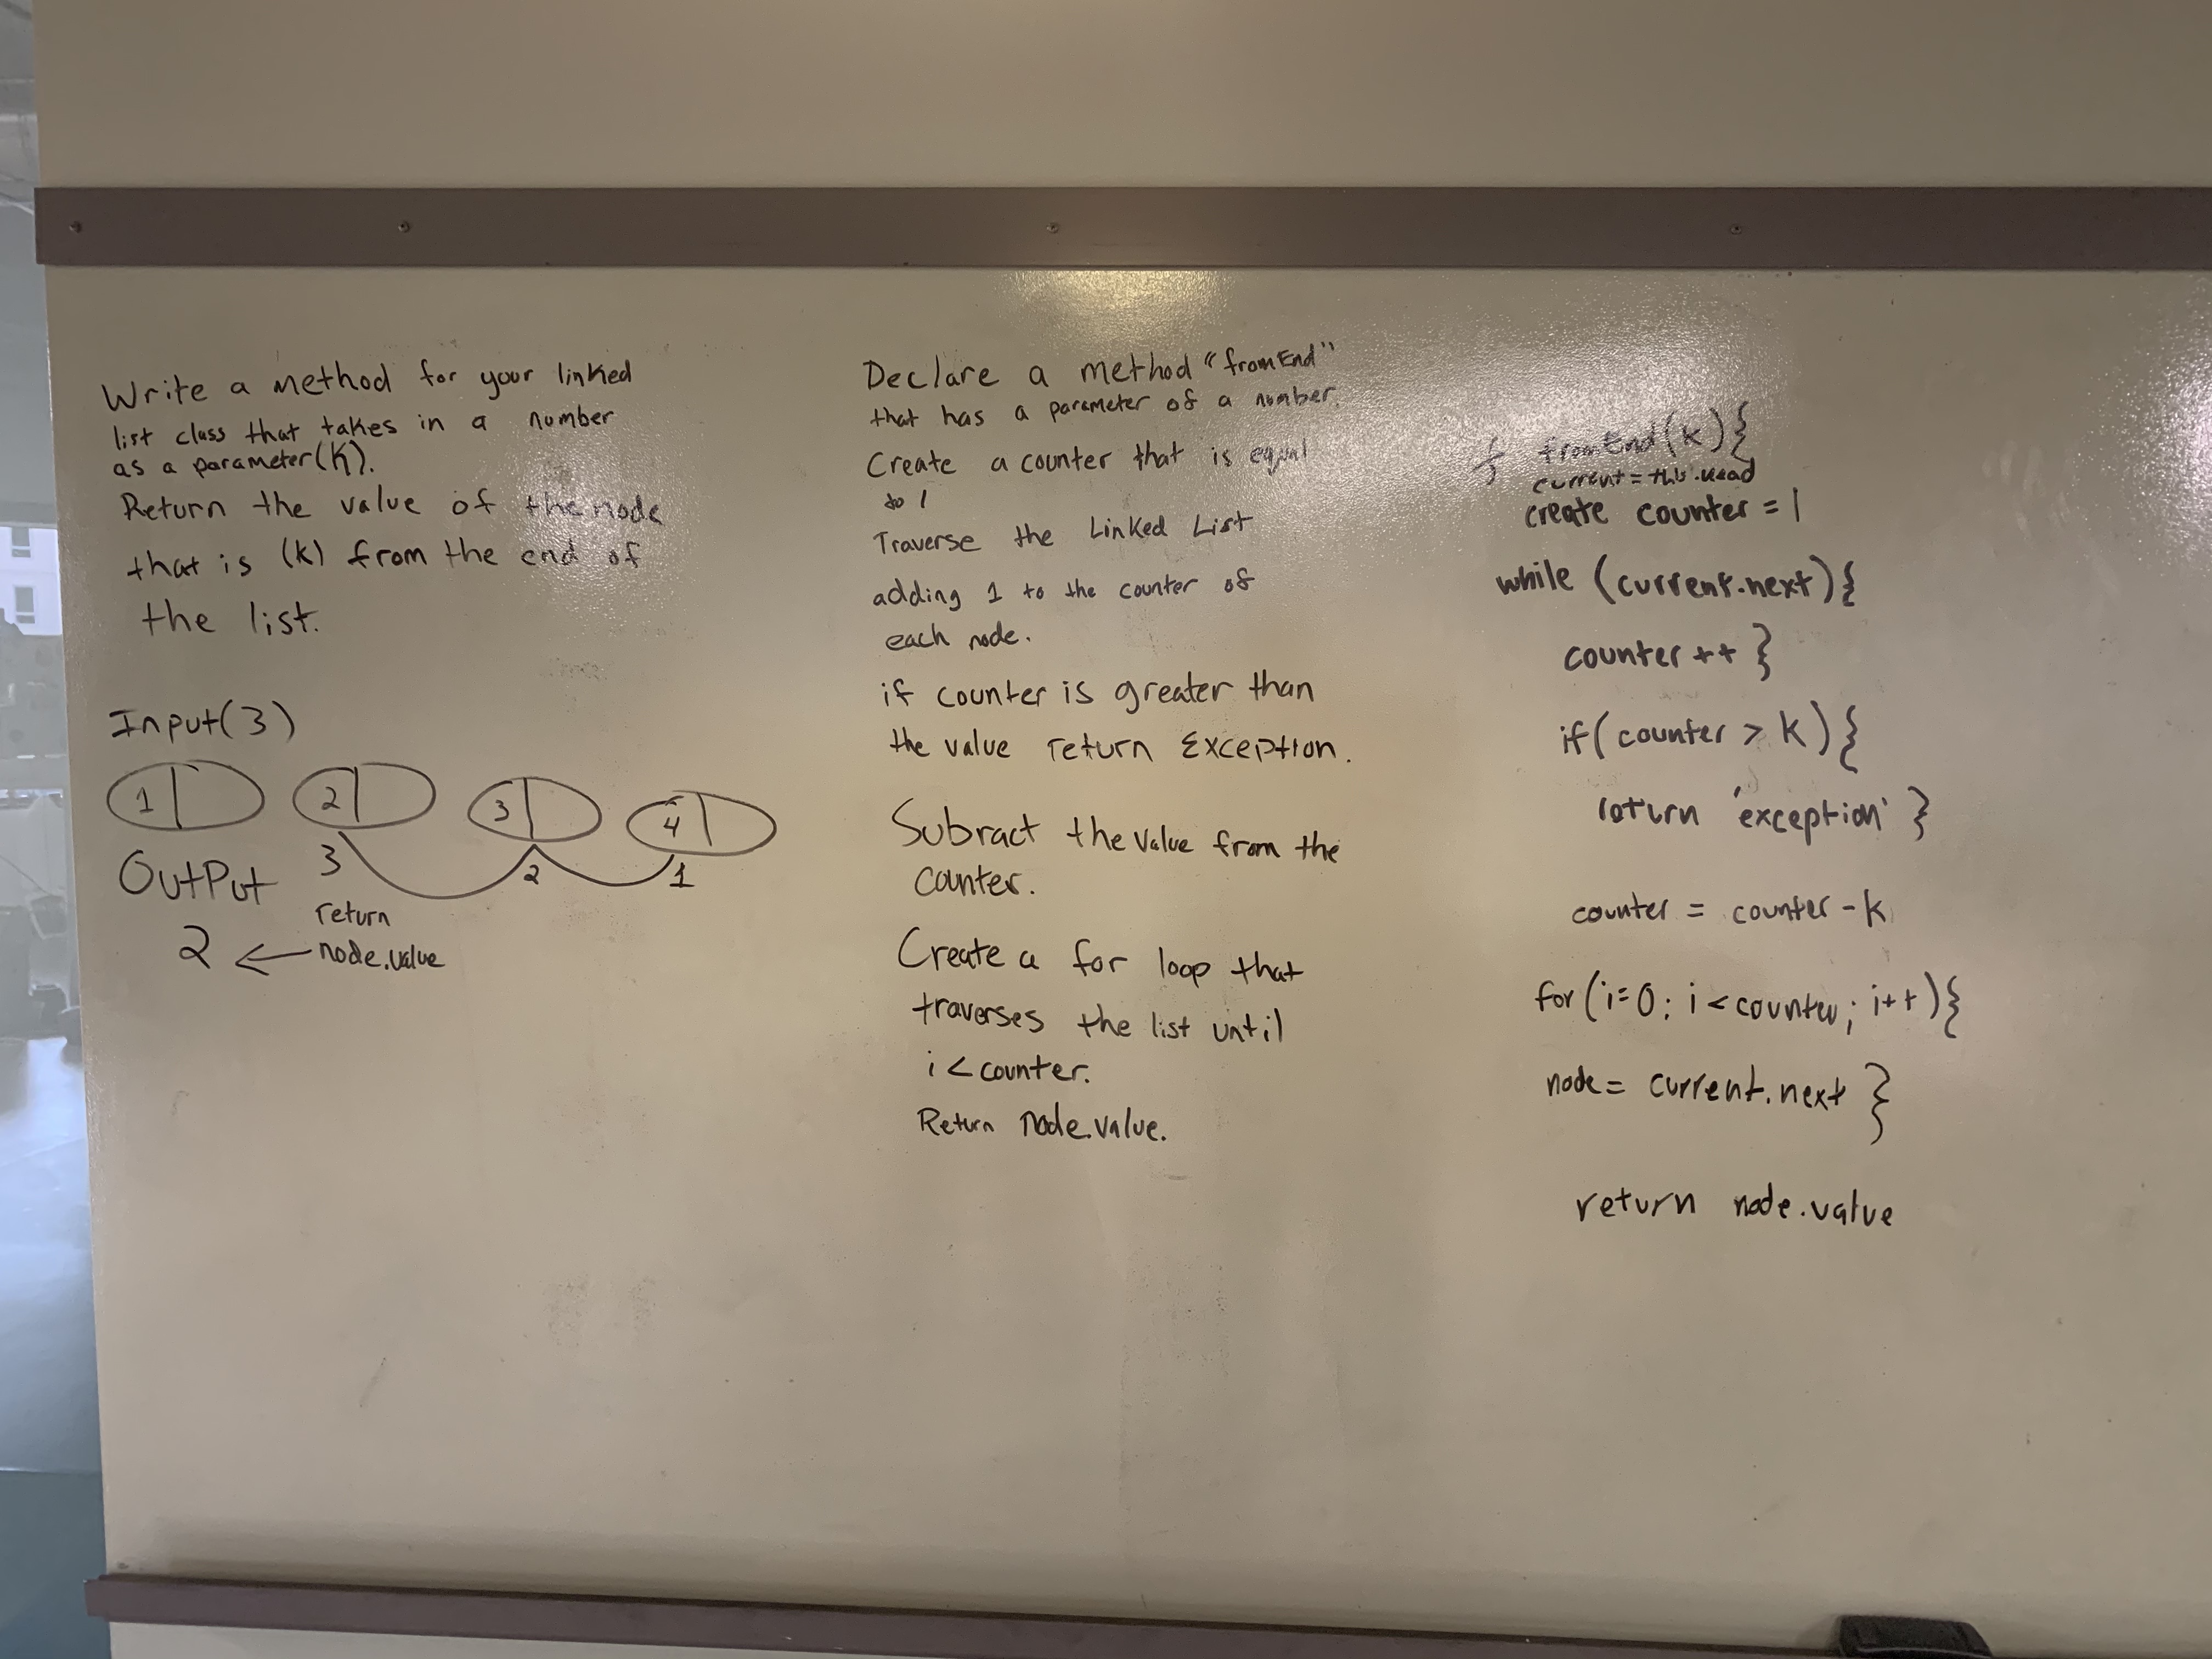 Write a method for your linked
list class that takes in a number
as a parameter(K).
Return the value of the node
that is (k) from the end of
the list.
Input(3)
1 2 3 4
3 2 1
OutPut
return
2 ← node.value
Declare a method "fromEnd"
that has a parameter of a number.
Create a counter that is equal
to 1
Traverse the Linked List
adding 1 to the counter of
each node.
if counter is greater than
the value return Exception.
Subract the value from the
counter.
Create a for loop that
traverses the list until
i < counter.
Return node.value.
fromEnd(k){
current = this.head
create counter = 1
while (current.next){
counter ++ }
if( counter > K ){
return 'exception' }
counter = counter - k
for (i=0; i < counter; i++){
node = current.next }
return node.value